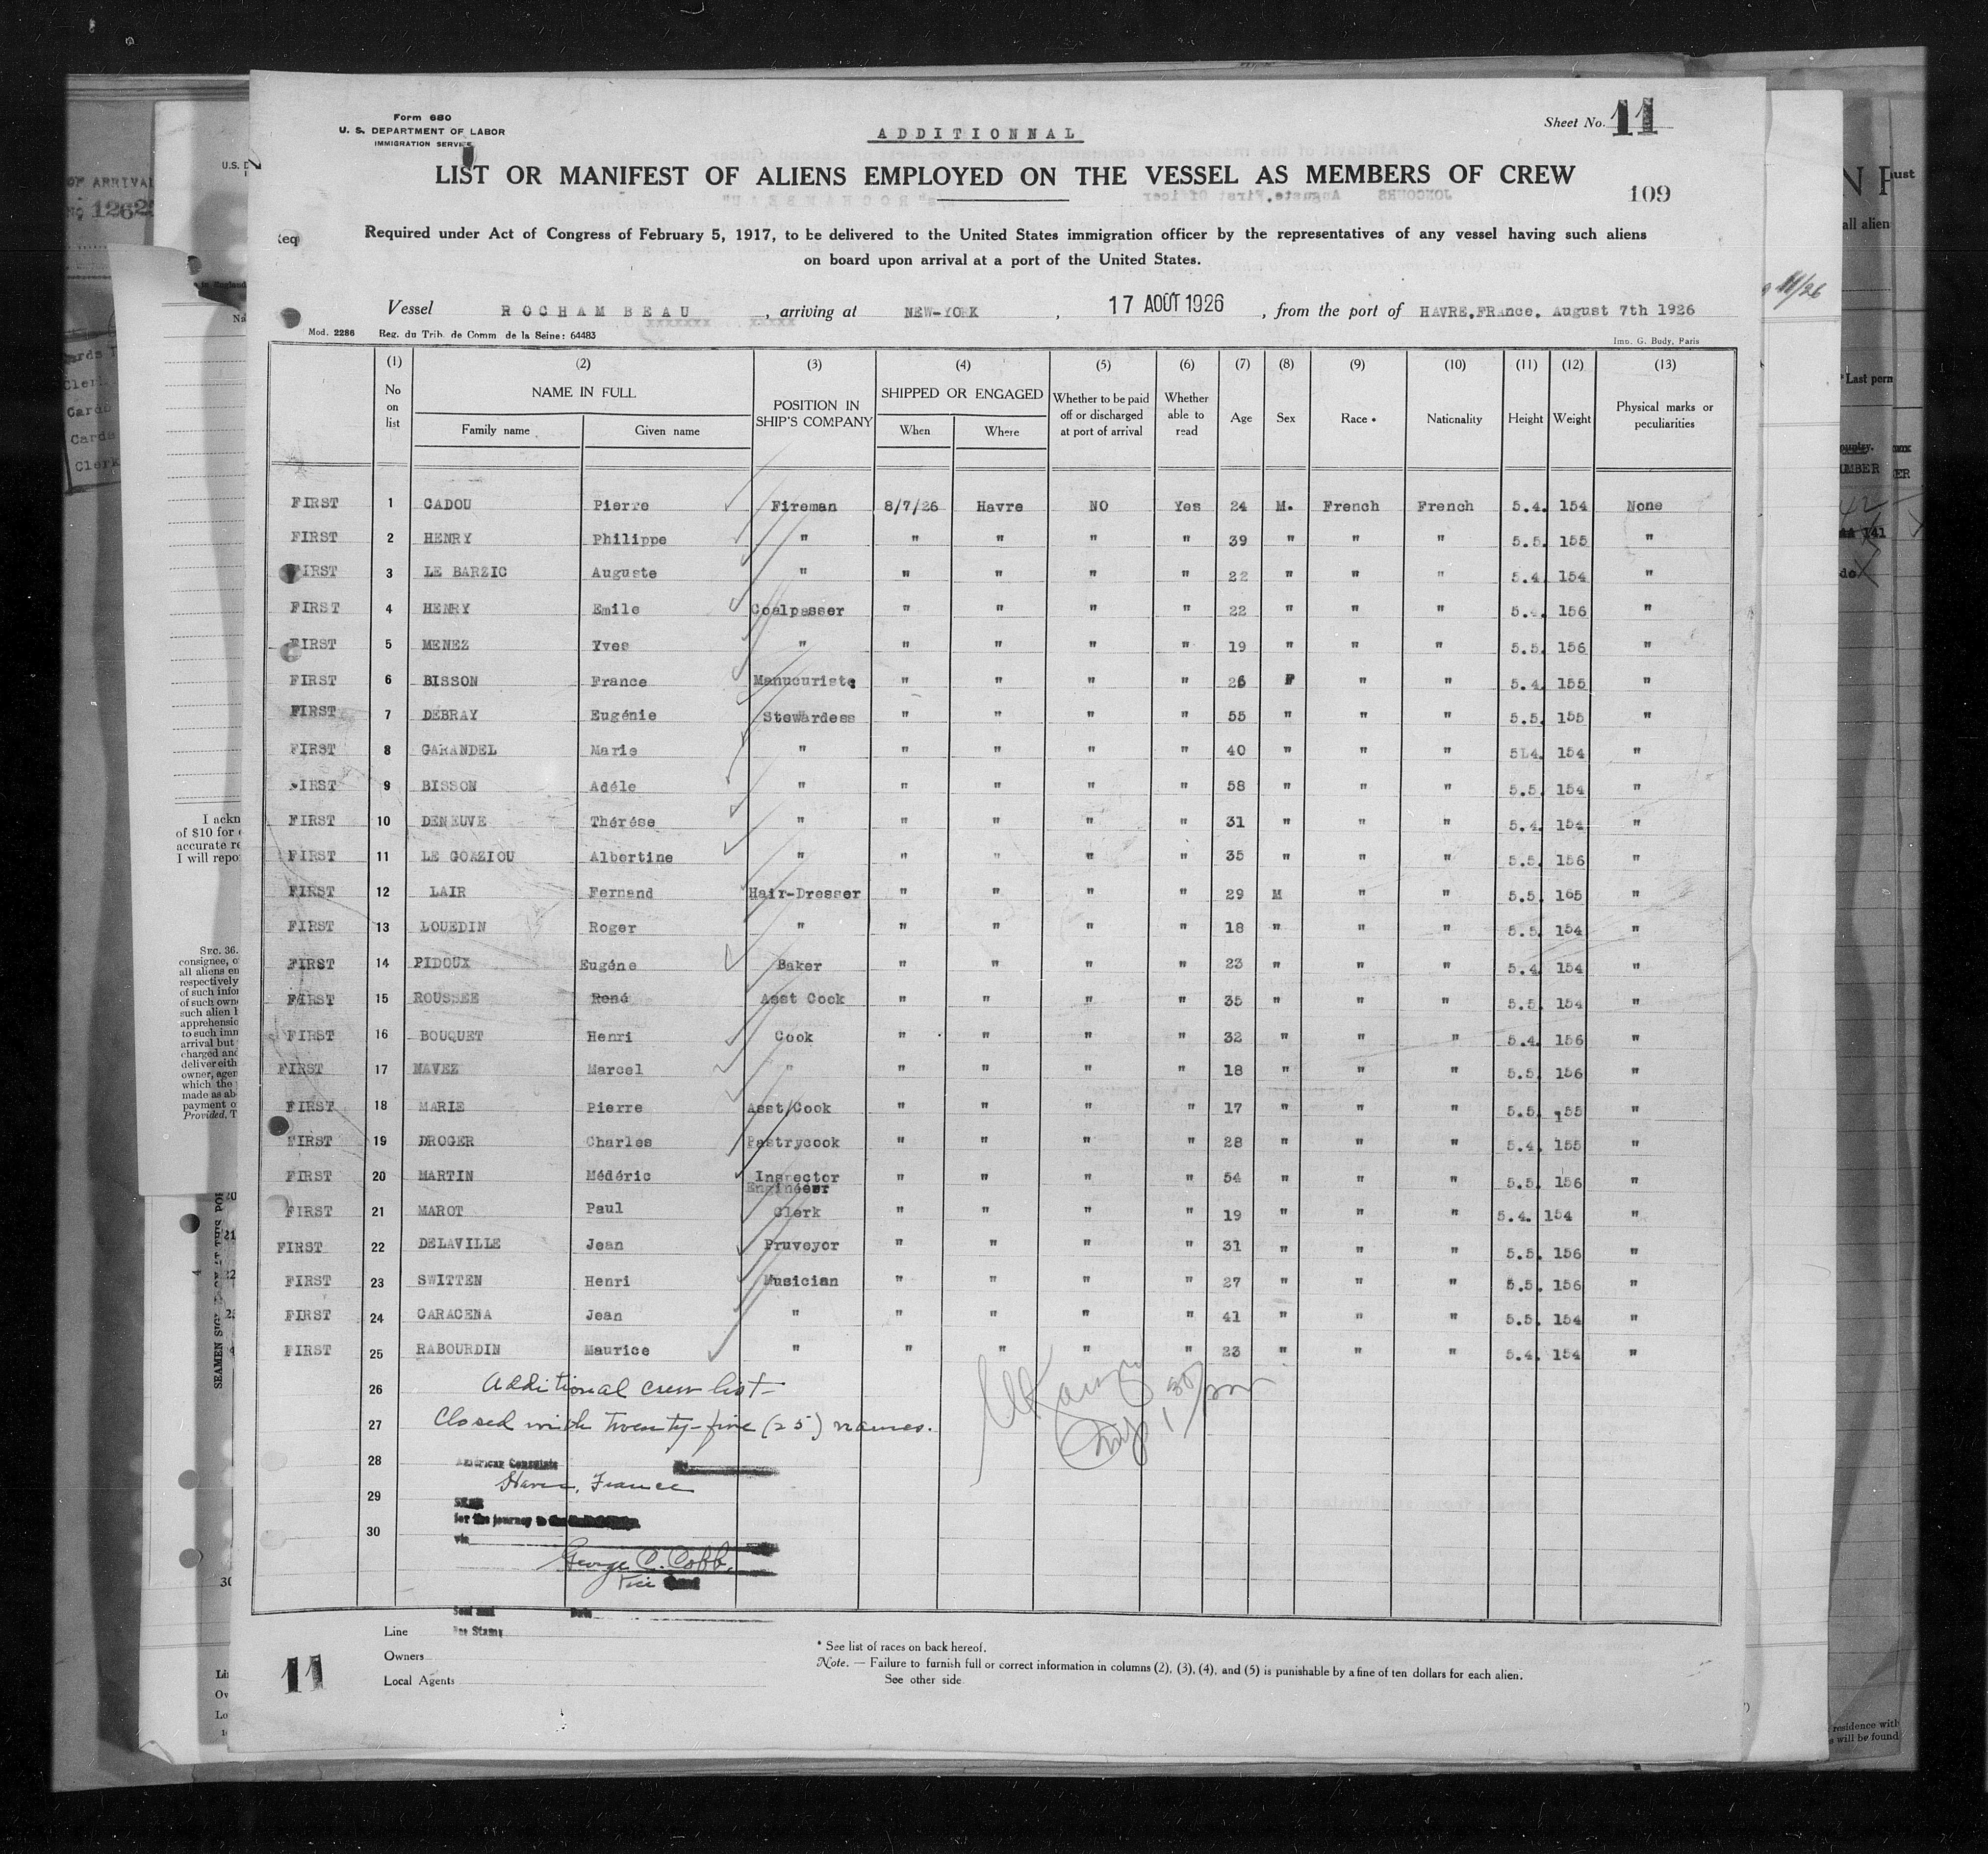 Form 680
U. S. DEPARTMENT OF LABOR
IMMIGRATION SERVICE
ADDITIONNAL
Sheet No. 11
LIST OR MANIFEST OF ALIENS EMPLOYED ON THE VESSEL AS MEMBERS OF CREW
109
Required under Act of Congress of February 5, 1917, to be delivered to the United States immigration officer by the representatives of any vessel having such aliens
on board upon arrival at a port of the United States.
Vessel ROCHAMBEAU, arriving at NEW-YORK, 17 AOÛT 1926, from the port of HAVRE.FRance. August 7th 1926
Mod. 2286 Reg. du Trib. de Comm de la Seine: 64483 Imp. G. Budy, Paris
(1) (2) (3) (4) (5) (6) (7) (8) (9) (10) (11) (12) (13)
No on list NAME IN FULL Family name Given name POSITION IN SHIP'S COMPANY SHIPPED OR ENGAGED When Where Whether to be paid off or discharged at port of arrival Whether able to read Age Sex Race * Nationality Height Weight Physical marks or peculiarities
FIRST 1 CADOU Pierre Fireman 8/7/26 Havre NO Yes 24 M. French French 5.4. 154 None
FIRST 2 HENRY Philippe " " " " " 39 " " " 5.5. 155 "
FIRST 3 LE BARZIC Auguste " " " " " 22 " " " 5.4. 154 "
FIRST 4 HENRY Emile Coalpasser " " " " 22 " " " 5.4. 156 "
FIRST 5 MENEZ Yves " " " " " 19 " " " 5.5. 156 "
FIRST 6 BISSON France Manucuriste " " " " 26 F " " 5.4. 155 "
FIRST 7 DEBRAY Eugénie Stewardess " " " " 55 " " " 5.5. 155 "
FIRST 8 GARANDEL Marie " " " " " 40 " " " 5L4. 154 "
FIRST 9 BISSON Adéle " " " " " 58 " " " 5.5. 154 "
FIRST 10 DENEUVE Thérése " " " " " 31 " " " 5.4. 154 "
FIRST 11 LE GOAZIOU Albertine " " " " " 35 " " " 5.5. 156 "
FIRST 12 LAIR Fernand Hair-Dresser " " " " 29 M " " 5.5. 165 "
FIRST 13 LOUEDIN Roger " " " " " 18 " " " 5.5. 154 "
FIRST 14 PIDOUX Eugéne Baker " " " " 23 " " " 5.4 154 "
FIRST 15 ROUSSEE René Asst Cook " " " " 35 " " " 5.5. 154 "
FIRST 16 BOUQUET Henri Cook " " " " 32 " " " 5.4. 156 "
FIRST 17 NAVEZ Marcel " " " " " 18 " " " 5.5. 156 "
FIRST 18 MARIE Pierre Asst/Cook " " " " 17 " " " 5.5. 155 "
FIRST 19 DROGER Charles Pastrycook " " " " 28 " " " 5.4. 155 "
FIRST 20 MARTIN Médéric Inspector Engineer " " " " 54 " " " 5.5. 156 "
FIRST 21 MAROT Paul Clerk " " " " 19 " " " 5.4. 154 "
FIRST 22 DELAVILLE Jean Pruveyor " " " " 31 " " " 5.5. 156 "
FIRST 23 SWITTEN Henri Musician " " " " 27 " " " 5.5. 156 "
FIRST 24 CARACENA Jean " " " " " 41 " " " 5.5. 154 "
FIRST 25 RABOURDIN Maurice " " " " " 23 " " " 5.4. 154 "
26 Additional crew list-
27 Closed with twenty-five (25) names.
28 American Consulate
Havre, France
29
for the journey to
30
via
George C. Cobb.
Vice
Seal and Date
Fee Stamp
Line
Owners
Local Agents
* See list of races on back hereof.
Note. — Failure to furnish full or correct information in columns (2), (3), (4), and (5) is punishable by a fine of ten dollars for each alien.
See other side
11